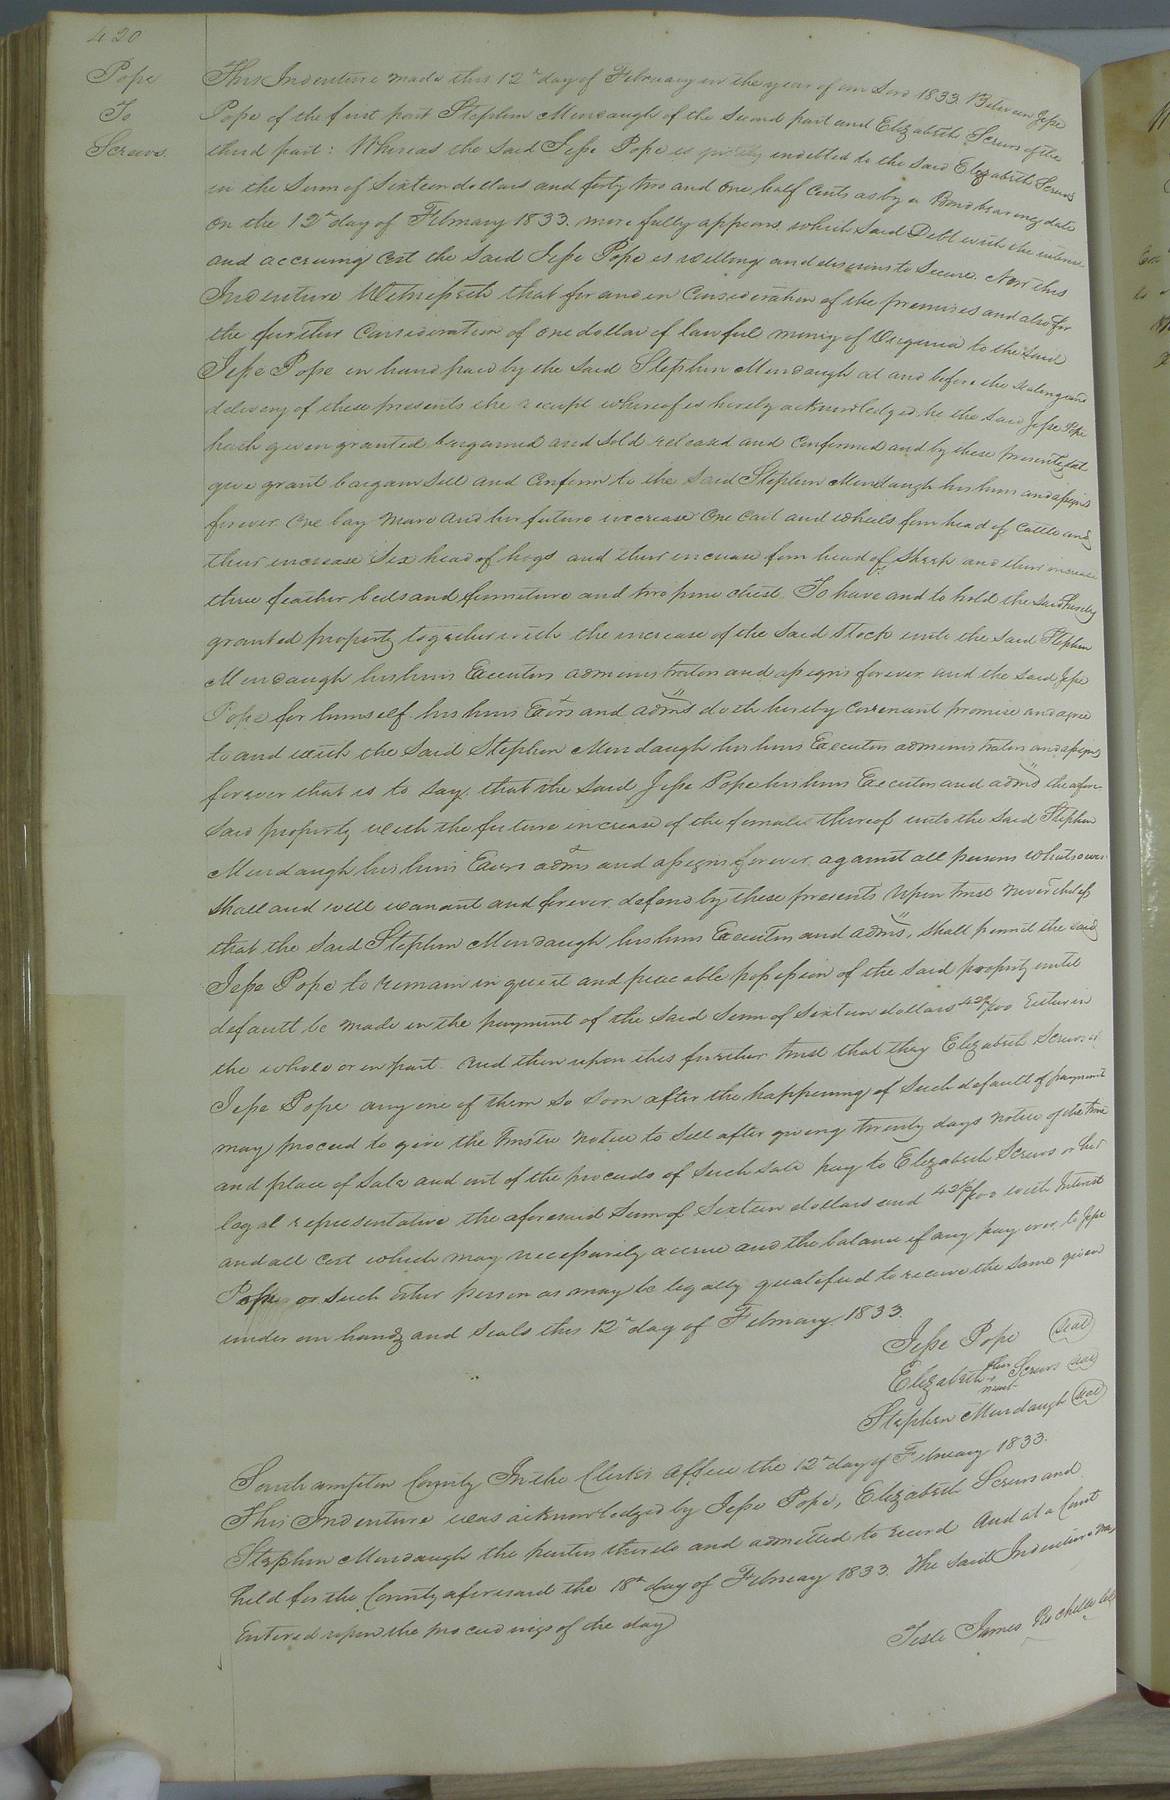 420
Pope
To
Screws
This Indenture made this 12th day of February in the year of our Lord 1833. Between Jesse
Pope of the first part Stephen Murdaugh of the Second part and Elizabeth Screws of the
third part: Whereas the said Jesse Pope is justly indebted to the said Elizabeth Screws
in the Sum of Sixteen dollars and forty two and one half Cents as by a Bond bearing date
on the 12th day of February 1833. more fully appears which said Debt with the interest
and accruing Cost the said Jesse Pope is willing and desirous to Secure. Now this
Indenture Witnesseth that for and in Consideration of the premises and also for
the further Consideration of one dollar of lawful money of Virginia to the said
Jesse Pope in hand paid by the said Stephen Murdaugh at and before the sealing and
delivery of these presents the receipt whereof is hereby acknowledged he the said Jesse Pope
hath given granted bargained and sold released and Confirmed and by these presents doth
give grant bargain sell and Confirm to the said Stephen Murdaugh his heirs and assigns
forever One bay Mare and her future increase One Cart and wheels four head of Cattle and
their increase Six head of hogs and their increase four head of Sheep and their increase
three feather beds and furniture and two pine chest. To have and to hold the said hereby
granted property together with the increase of the said stock unto the said Stephen
Murdaugh his heirs Executors administrators and assigns forever and the said Jesse
Pope for himself his heirs Exors and admrs doth hereby Covenant promise and agree
to and with the said Stephen Murdaugh his heirs Executors administrators and assigns
forever that is to say, that the said Jesse Pope his heirs Executors and admrs the afore-
said property with the future increase of the females thereof unto the said Stephen
Murdaugh his heirs Exors adms and assigns forever against all persons whatsoever
shall and will warrant and forever defend by these presents Upon trust nevertheless
that the said Stephen Murdaugh his heirs Executors and admrs, shall permit the said
Jesse Pope to remain in quiet and peaceable possession of the said property until
default be made in the payment of the said Sum of Sixteen dollars 42½/100 Either in
the whole or in part. and then upon this further trust that they Elizabeth Screws or
Jesse Pope any one of them so soon after the happening of such default of payment
may proceed to give the Trustee notice to sell after giving twenty days notice of the time
and place of sale and out of the proceeds of such sale pay to Elizabeth Screws or her
legal representative the aforesaid Sum of Sixteen dollars and 42½/100 with Interest
and all Cost which may necessarily accrue and the balance if any pay over to Jesse
Pope or such other person as may be legally qualified to receive the same given
under our hands and seals this 12th day of February 1833.
Jesse Pope (seal)
Elizabeth her + mark Screws (seal)
Stephen Murdaugh (seal)
Southampton County In the Clerk's Office the 12th day of February 1833.
This Indenture was acknowledged by Jesse Pope, Elizabeth Screws and
Stephen Murdaugh the parties thereto and admitted to record And at a Court
held for the County aforesaid the 18th day of February 1833. The said Indenture was
Entered upon the proceedings of the day
Teste James Rochelle clk